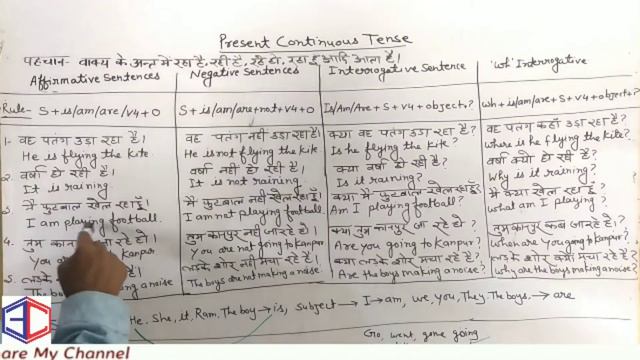 Present Continuous Tense
पहचान- वाक्य के अन्त में रहा है, रही है, रहे हो, रहा हूँ आदि आता है।
Affirmative Sentences
Negative Sentences
Interrogative Sentence
'Wh' Interrogative
Rule- S + is/am/are/v4 + O
S + is/am/are+not+v4+O
Is/Am/Are + S + v4 + object+?
Wh + is/am/are + S + v4 + object+?
1- वह पतंग उड़ा रहा है।
वह पतंग नहीं उड़ा रहा है।
क्या वह पतंग उड़ा रहा है?
वह पतंग कहाँ उड़ा रहा है?
He is flying the kite
He is not flying the kite.
Is he flying the kite?
where is he flying the kite?
2. वर्षा हो रही है।
वर्षा नहीं हो रही है।
क्या वर्षा हो रही है?
वर्षा क्यों हो रही है?
It is raining.
It is not raining
Is it raining?
Why is it raining?
3. मैं फुटबाल खेल रहा हूँ।
मैं फुटबाल नहीं खेल रहा हूँ।
क्या मैं फुटबाल खेल रहा हूँ?
मैं क्या खेल रहा हूँ?
I am playing football.
I am not playing football
Am I playing football?
what am I playing?
4. तुम रहे हो।
तुम कानपुर नहीं जा रहे हो।
क्या तुम कानपुर जा रहे हो?
तुम कानपुर कब जा रहे हो?
You Kanpur
You are not going to Kanpur
Are you going to Kanpur?
when are you going to Kanpur?
5. लड़के है।
लड़के शोर नहीं मचा रहे है।
क्या लड़के शोर मचा रहे है?
लड़के शोर क्यों मचा रहे है?
The a noise
The boys are not making a noise.
Are the boys making a noise?
Why are the boys making a noise?
He, She, it, Ram, The boy → is, subject → I → am, we, you, They, The boys, → are
Go, went, gone going
are My Channel